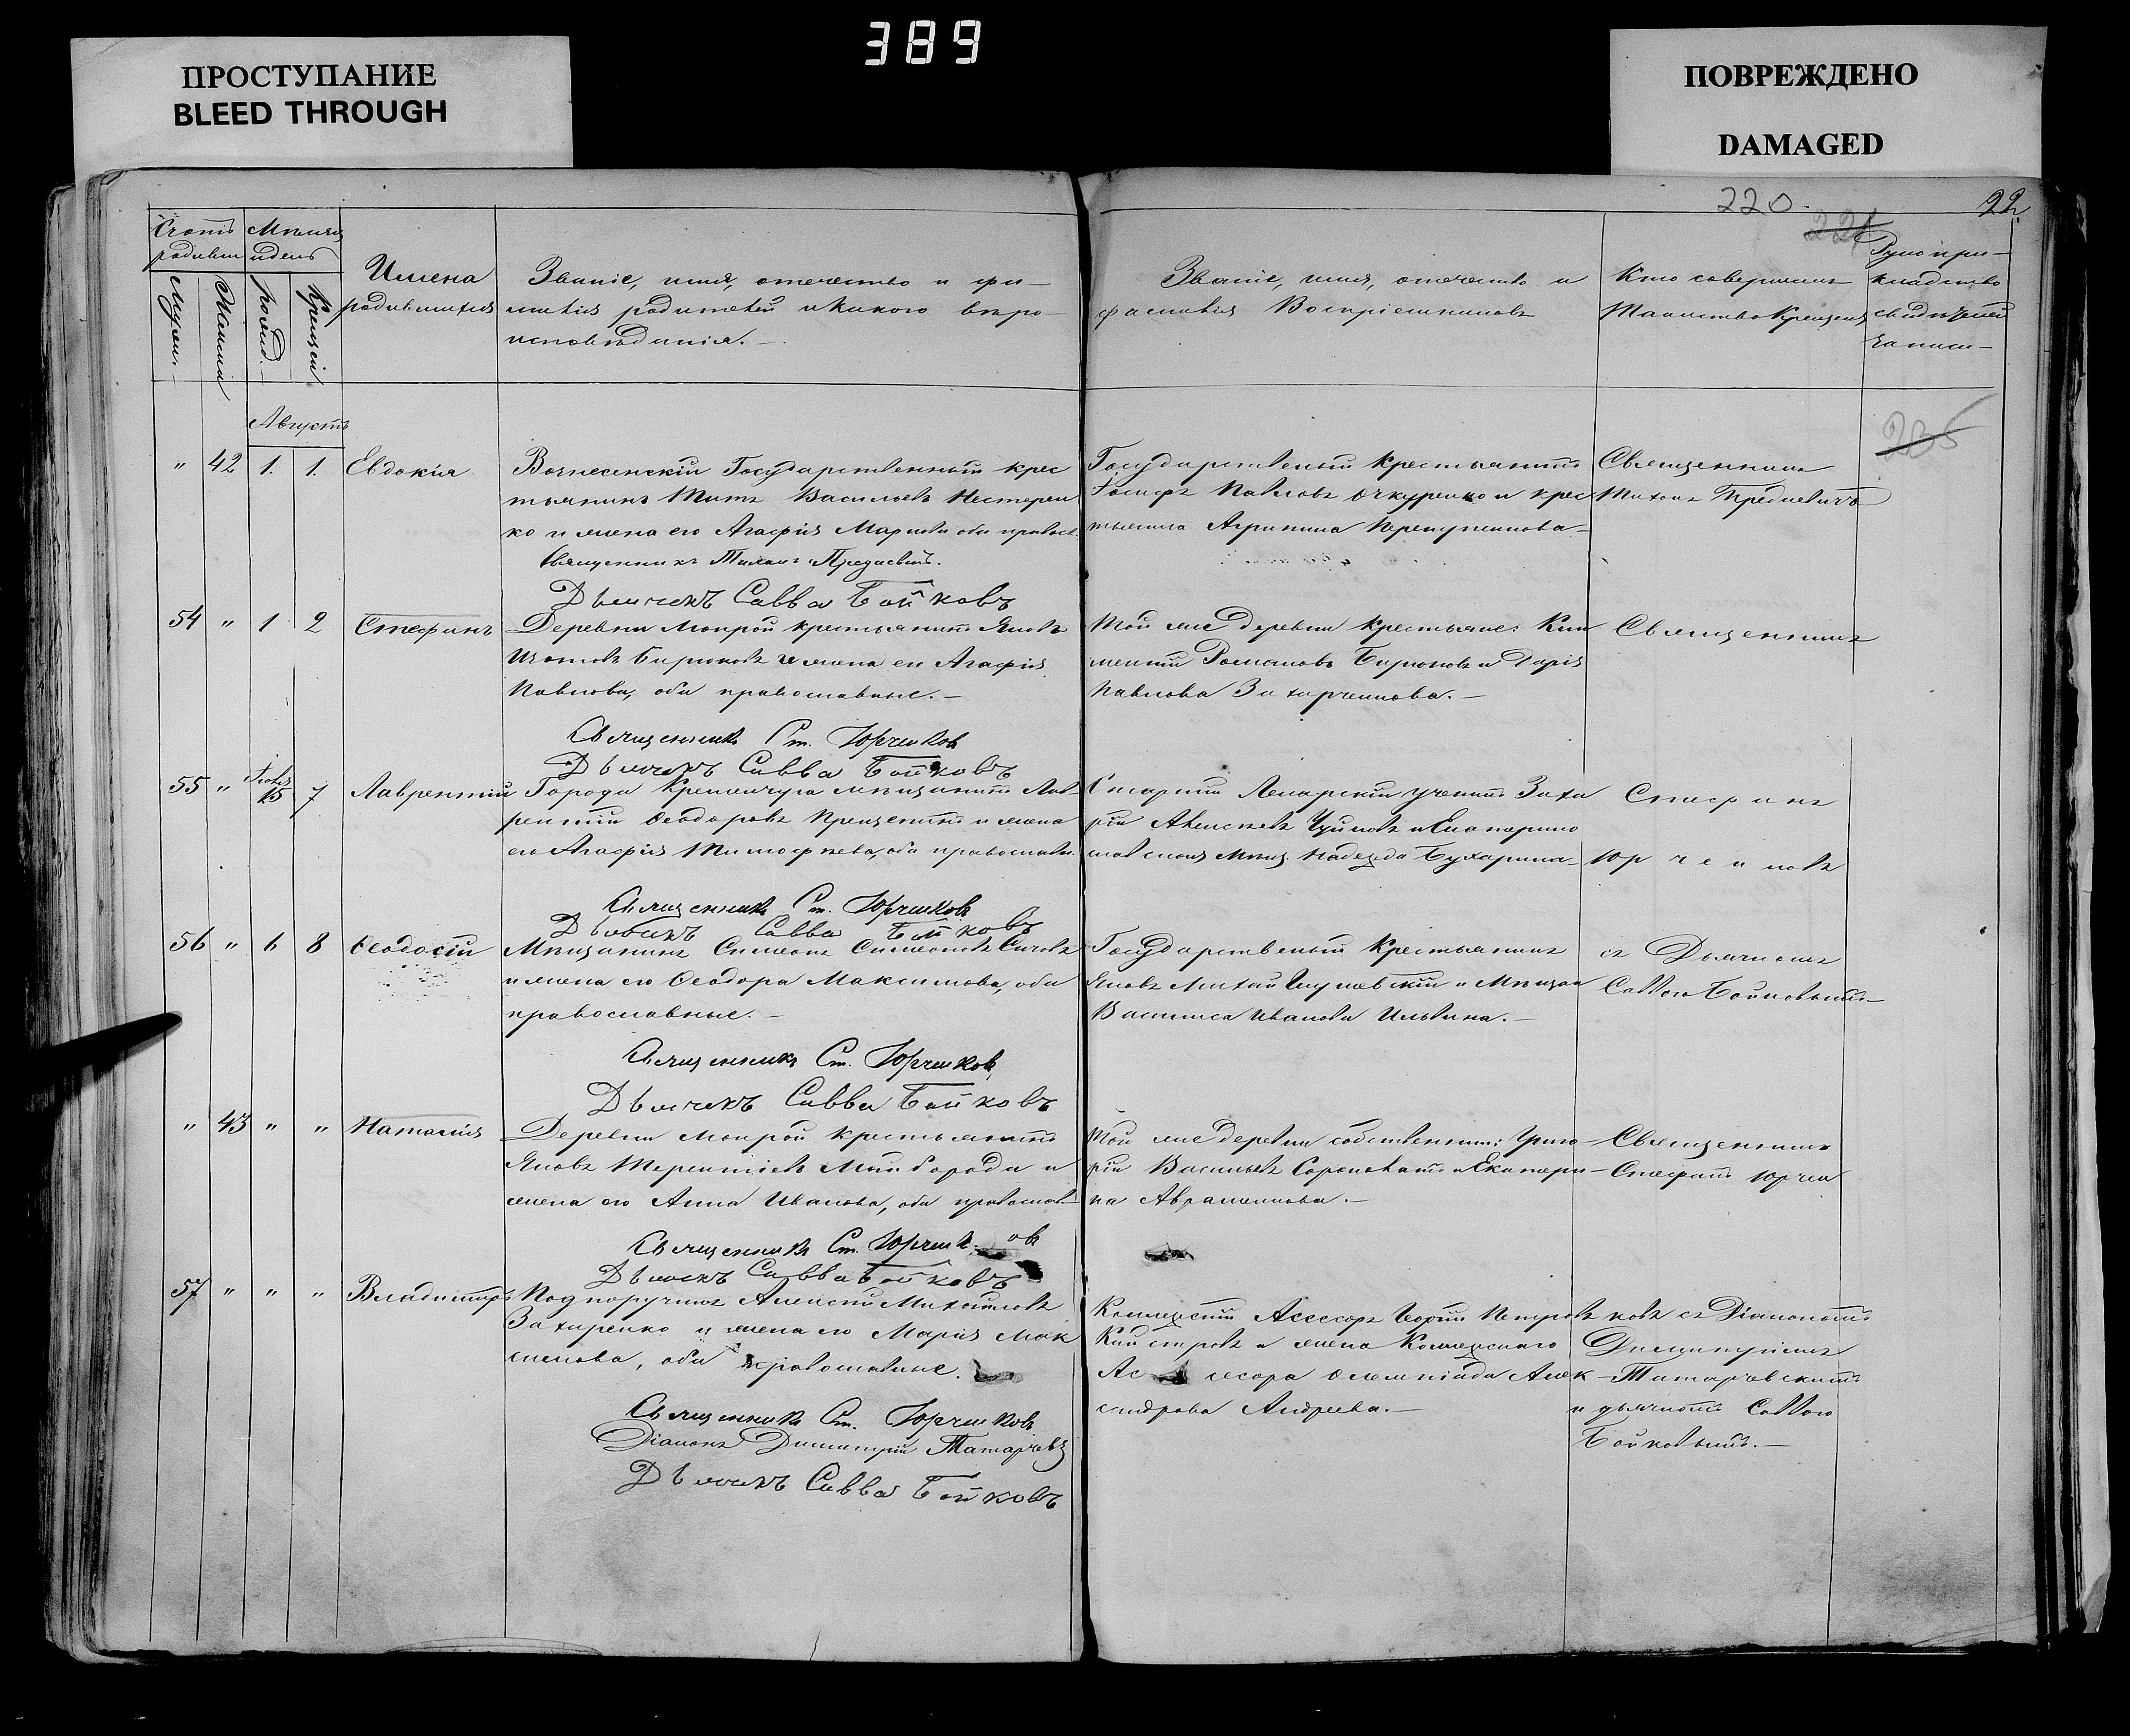 389
ПРОСТУПАНИЕ
BLEED THROUGH
ПОВРЕЖДЕНО
DAMAGED
220.
22
Счетъ родивш
Мѣсяцъ и день
Имена родившихся
Званіе, имя, отечество и фамилія родителей и какого вѣроисповѣданія.
Званіе, имя, отечество и фамилія Воспріемниковъ
Кто совершилъ Таинство Крещенія
Рукоприкладство свидѣтелей записи
Август
" 42 1. 1. Евдокія
Вознесенскій Государственный крес
тьянинъ Титъ Васильевъ Нестерен
ко и жена его Агафія Маркова оба правосл.
Священникъ Тихонъ
Дьячекъ Савва Бойковъ
Государственный Крестьянинъ
Іосифъ Павловъ Очкуренко и крес
тьянка Агрипина
Священникъ
Тихонъ
54 " 1 2 Стефанъ
Деревни Мокрой крестьянинъ Яковъ
Изотовъ Бирюковъ и жена его Агафія
Павлова, оба православные.—
Священникъ Ст. Юрченковъ
Дьячекъ Савва Бойковъ
Той же деревни крестьяне: Кли
ментій Романовъ Бирюковъ и Дарія
Павлова Захарченкова.—
Священникъ
55 " 15 7 Лаврентій
Города Кременчуга мѣщанинъ Лав
рентій Феодоровъ и жена
его Агафія Тимофѣева, оба православн.
Священникъ Ст. Юрченковъ
Дьячекъ Савва Бойковъ
Старшій Лекарскій ученикъ Заха
рій Алексѣевъ и Екатерино
славская мѣщ. Надежда Бухарина
Стефанъ
Юрченковъ
56 " 6 8 Феодосій
Мѣщанинъ Симеонъ Симеоновъ Сичовъ
и жена его Феодора Максимова, оба
православные.—
Священникъ Ст. Юрченковъ
Дьячекъ Савва Бойковъ
Государственный Крестьянинъ
Яковъ и Мѣщан
Василиса Иванова Ильина.—
съ Дьячкомъ
Саввою Бойковымъ
" 43 " " Наталія
Деревни Мокрой крестьянинъ
Яковъ Терентіевъ Майборода и
жена его Анна Иванова, оба православ
Священникъ Ст. Юрченковъ
Дьячекъ Савва Бойковъ
Той же деревни собственник: Григо
рій Васильевъ и Екатери
на Авраменкова.—
Священникъ
Стефанъ Юрчен
57 " " " Владимиръ
Подпоручикъ Алексій Михайловъ
Захаренко и жена его Марія Мак
симова, оба православные.
Священникъ Ст. Юрченковъ
Діаконъ Димитрій
Дьячекъ Савва Бойковъ
Коллежскій Асессоръ Георгій Петровъ
и жена Коллежскаго
Ассесора Олемпіада Алек
сандрова Андреева.—
ковъ съ Діакономъ
Димитріемъ
Татарчевскимъ
и дьячкомъ Саввою
Бойковымъ.—